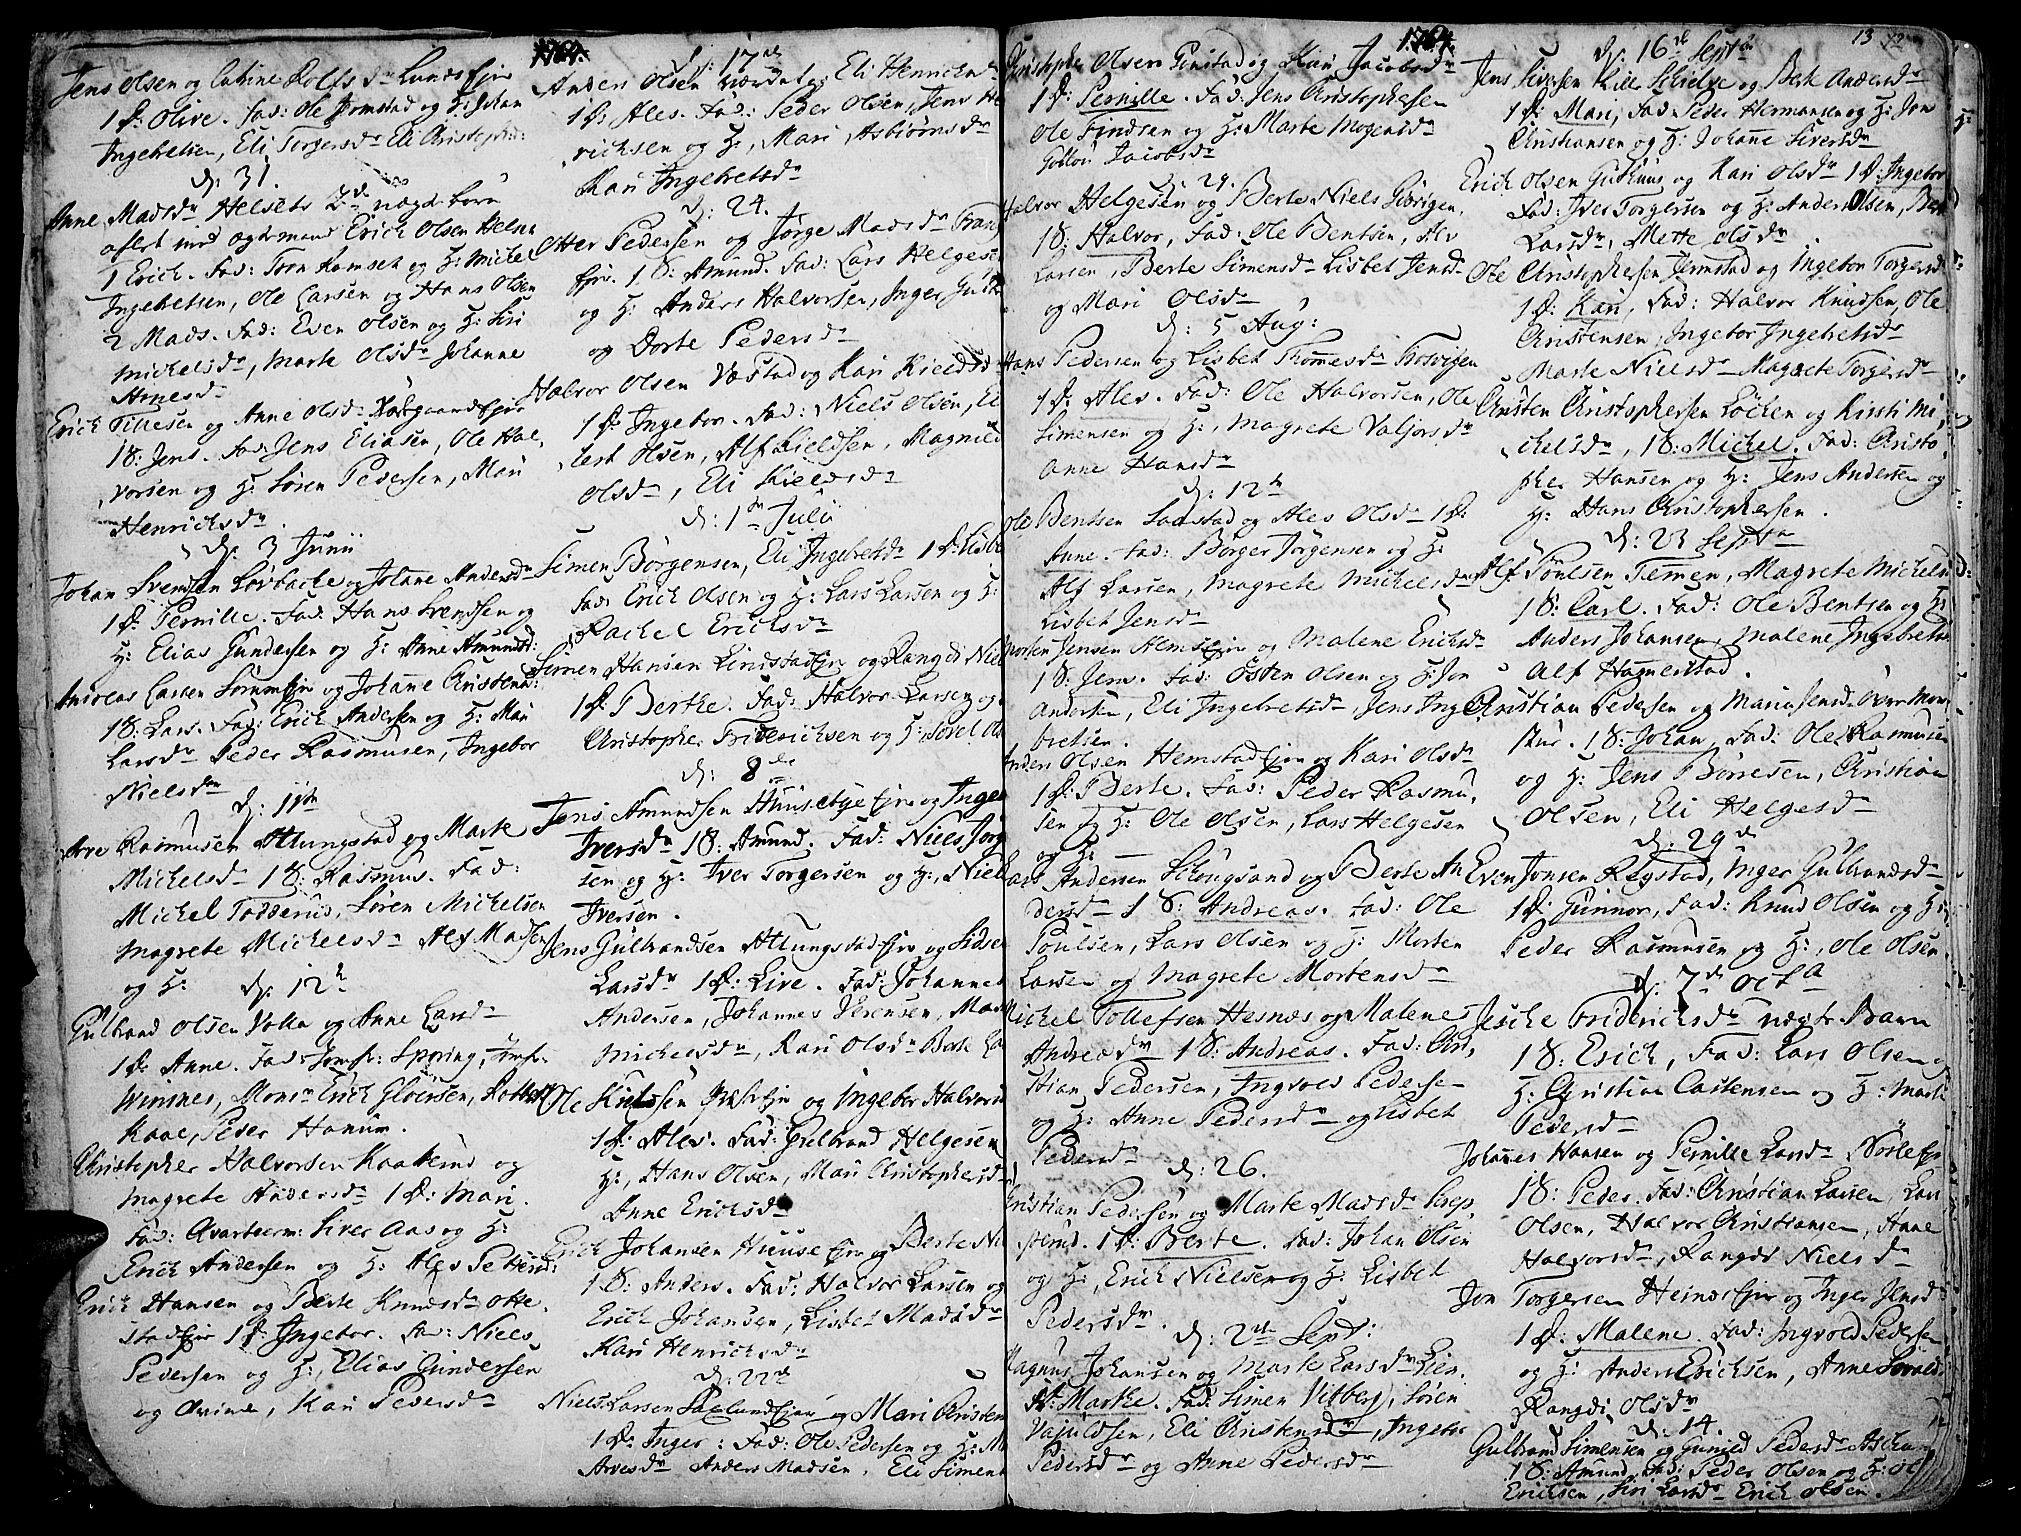 1764.
Jens Olsen og Cabine Rolfsdr Lundsejer
1 D: Olive. Fad: Ole Jemstad og H: Johan
Ingebretsen, Eli Torgersdr Eli Christophs:
d: 31.
Anne Madsdr Helsets 2de uægte børn
aflet med ægtemand Erich Olsen Helset
1 Erich. Fad: Tron Ramset og H: Michel
Ingebretsen, Ole Larsen og Hans Olsen
2 Mads. Fad: Even Olsen og H: Siri
Michelsdr, Marte Olsdr Johanne
Arnesdr
Erich Tillesen og Anne Olsdr
1 S: Jens. Fad: Jens Eliasen, Ole Hal,
vorsen og H: Sören Pedersen, Mari
Henrichsdr.
d: 3 Junii
Johan Svendsen Lövbacke og Johane Andersdr
1 D: Pernille. Fad: Hans Svendsen og
H: Elias Gundersen og H: Anne Amunds:
Andreas Larsen og Johanne Christens:
1 S: Lars. Fad: Erich Andersen og H: Mari
Larsdr Peder Rasmusen, Ingebor
Nielsdr
d: 11te
Arve Rasmusen Attungstad og Marte
Michelsdr 1 S: Rasmus. Fad:
Michel Todderud, Sören Michelsen
Magrete Michelsdr Alf Madsen
og H: d: 12te
Gulbrand Olsen Volla og Anne Larsdr
1 D: Anne. Fad: Jomfr: Sporing, Jomfr:
Winsnes, Monsr Erich Glöersen,
Kaae, Peder Hanum.
Christopher Halvorsen Kaaterud og
Magrete Andersdr 1 D: Mari.
Fad: Qvarteerm: Siver Aas og H:
Erich Andersen og H: Ales Pettersd:
Erich Hansen og Berte Knudsdr Otte,
stadejer 1 D: Ingebor. Fad: Niels
Pedersen og H:, Elias Gundersen
og Qvinne, Kari Pedersdr
d: 17de
Anders Olsen og Eli Henrichs
1 D: Ales. Fad: Peder Olsen, Jens He
richsen og H:, Mari Asbiörnsdr
Kari Ingebretsdr
d: 24.
Otter Pedersen og Jörge Madsdr
ejer. 1 S: Amund. Fad: Lars Helgesen
og H: Anders Halvorsen, Inger
og Dorte Pedersdr
Halvor Olsen Væstad og Kari Kieldsd
1 D: Ingebor. Fad: Niels Olsen, El
lert Olsen, Alf Kieldsen, Magnild
Olsdr, Eli Kieldsdr
d: 1ste Julii
Simen Börgensen, Eli Ingebretsdr 1 D: Lisbe
Fad: Erich Olsen og H: Lars Larsen og H:
Rachel Erichsdr
Simen Hansen Lindstadejer og Rangdi Niel
1 D: Berthe. Fad: Halvor Larsen og
Christopher Friderichsen og H: Sövel Ol
d: 8de
Jens Amundsen Huusebyeejer og Inge
Iversdr 1 S: Amund. Fad: Niels Jörg
sen og H: Iver Torgersen og H:, Niels
Iversen.
Jens Gulbrandsen Attungstadejer og Sidse
Larsdr 1 D: Live. Fad: Johannes
Andersen, Johannes Sörensen, Mari
Michelsdr, Kari Olsdr Berte La
Ole Knudsen og Ingebor Halvors
1 D: Ales. Fad: Gulbrand Helgesen
H:, Hans Olsen, Mari Christophersdr
Anne Erichsdr
Erich Johansen Huuseejer og Berte Ni
1 S: Anders. Fad: Halvor Larsen og
Erich Johansen, Lisbet Madsdr
Kari Henrichsdr
d: 22de
Niels Larsen og Mari Christen
1 D: Inger: Fad: Ole Pedersen og H: M
Arvesdr Anders Madsen, Eli Simens
1764.
Christopher Olsen Finstad og Kari Jacobsdr
1 D: Pernille. Fad: Jens Christophersen
Ole Findsen og H: Marte Mogensdr
Jacobsdr
d: 29.
Halvor Helgesen og Berte Niels
1 S: Halvor, Fad: Ole Bentsen, Alv
Larsen, Berte Simensdr Lisbet Jensdr
og Mari Olsdr
d: 5 Aug:
Hans Pedersen og Lisbet Thomesdr
1 D: Ales. Fad: Ole Halvorsen, Ole
Simensen og H:, Magrete Valjorsdr
Anne Hansdr
d: 12te
Ole Bentsen Saastad og Ales Olsdr 1 D:
Anne. Fad: Börger Jörgensen og H:
Alf Larsen, Magrete Michelsdr,
Lisbet Jensdr
Morten Jensen Almsejer og Malene Erichsdr
1 S: Jens. Fad: Östen Olsen og H: Jon
Andersen, Eli Ingebretsdr, Jens Inge
bretsen.
Anders Olsen Hemstadejer og Kari Olsdr
1 D: Berte. Fad: Peder Rasmu,
sen og H: Ole Olsen, Lars Helgesen
og H: —
Lars Andersen Schougsand og Berte An
dersdr 1 S: Andreas. Fad: Ole
Poulsen, Lars Olsen og H: Morten
Larsen og Magrete Mortensdr
Michel Tollefsen Hesnæs og Malene
Andreadr 1 S: Andreas. Fad: Chri,
stian Pedersen, Ingvold Pederse
og H: Anne Pedersdr og Lisbet
Pedersdr
d: 26.
Christian Pedersen og Marte Madsdr
1 D: Berte. Fad: Johan Olsen
og H:, Erich Nielsen og H: Lisbet
Pedersdr.
d: 2den Sept:
Magnus Johansen og Marte Larsdr Lien.
D: Marthe. Fad: Simen Vitberg, Sören
Eli Christensdr, Ingebor
Pedersdr og Anne Pedersdr
13
d: 16de Septbr
Jens Siversen Lille Schielse og Berte Andersdr
1 D: Mari, Fad: Peder Hermansen og H: Jon
Christiansen og H: Johanne Siversdr
Erich Olsen Gudhuus og Kari Olsdr 1 D: Ingebor
Fad: Iver Torgersen og H: Anders Olsen, Ber
Larsdr, Mette Olsdr
Ole Christophersen Jemstad og Ingebor Torgersd
1 D: Kari, Fad: Halvor Knudsen, Ole
Christensen, Ingebor Ingebretsdr
Marte Nielsdr Magrete Torgersdr
Christen Christophersen Löcken og Kirsti Mi,
chelsdr, 1 S: Michel. Fad: Christo
pher Hansen og H: Jens Andersen og
H: Hans Christophersen.
d: 23 Septbr
Alf Poulsen Temmen, Magrete Michels
1 S: Carl. Fad: Ole Bentsen og H:
Anders Johansen, Malene Ingebrets
Alf Hammerstad.
Christian Pedersen og Maria Jensdr
1 S: Johan, Fad: Ole Rasmusen
og H: Jens Börresen, Christian
Olsen, Eli Helgesdr
d: 29de
Even Jonsen Rogstad, Inger Gulbrandsdr
1 D: Gunnor, Fad: Knud Olsen og H:
Peder Rasmusen og H:, Ole Olsen
d: 7de Octbr
Jesche Friderichsdr uægte Barn
1 S: Erich, Fad: Lars Olsen og
H: Christian Castensen og H: Marte
Pedersdr
Johannes Hansen og Pernille Larsdr
1 S: Peder. Fad: Christian Larsen, Lars
Olsen, Halvor Christiansen, Anne
Halvorsdr, Rangdi Nielsdr
Jon Torgersen og Inger Jensd
1 D: Malene. Fad: Ingvold Pedersen
og H: Anders Erichsen, Anne
Rangdi Olsdr
d: 14.
Gulbrand Simensen og Gunild Pedersdr
1 S: Amund. Fad: Peder Olsen og H: Ole
Erichsen, Siri Larsdr Erich Olsen.